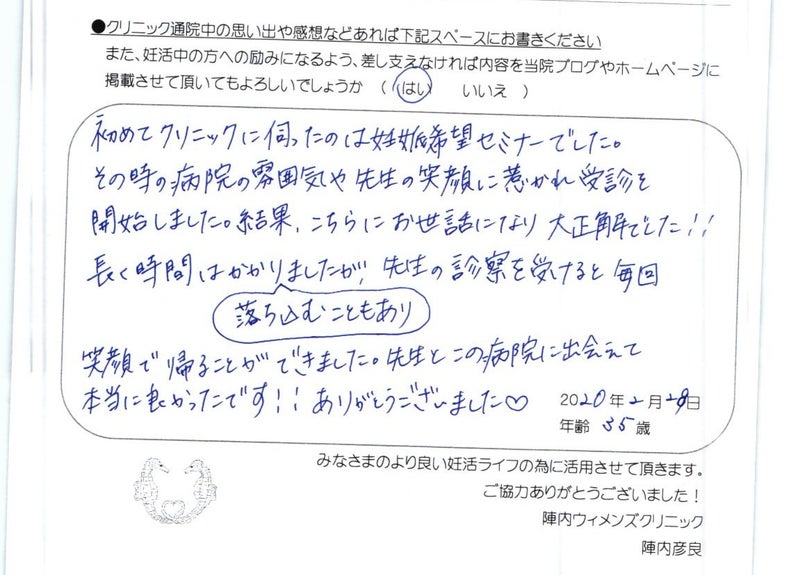 ●クリニック通院中の思い出や感想などあれば下記スペースにお書きください
また、妊活中の方への励みになるよう、差し支えなければ内容を当院ブログやホームページに
掲載させて頂いてもよろしいでしょうか （ はい いいえ ）
初めてクリニックに伺ったのは妊娠希望セミナーでした。
その時の病院の雰囲気や先生の笑顔に惹かれ受診を
開始しました。結果、こちらにお世話になり大正解でした!!
長く時間はかかりましたが、先生の診察を受けると毎回
落ち込むこともあり
笑顔で帰ることができました。先生とこの病院に出会えて
本当に良かったです!! ありがとうございました♡
2020年2月28日
年齢 35歳
みなさまのより良い妊活ライフの為に活用させて頂きます。
ご協力ありがとうございました！
陣内ウィメンズクリニック
陣内彦良